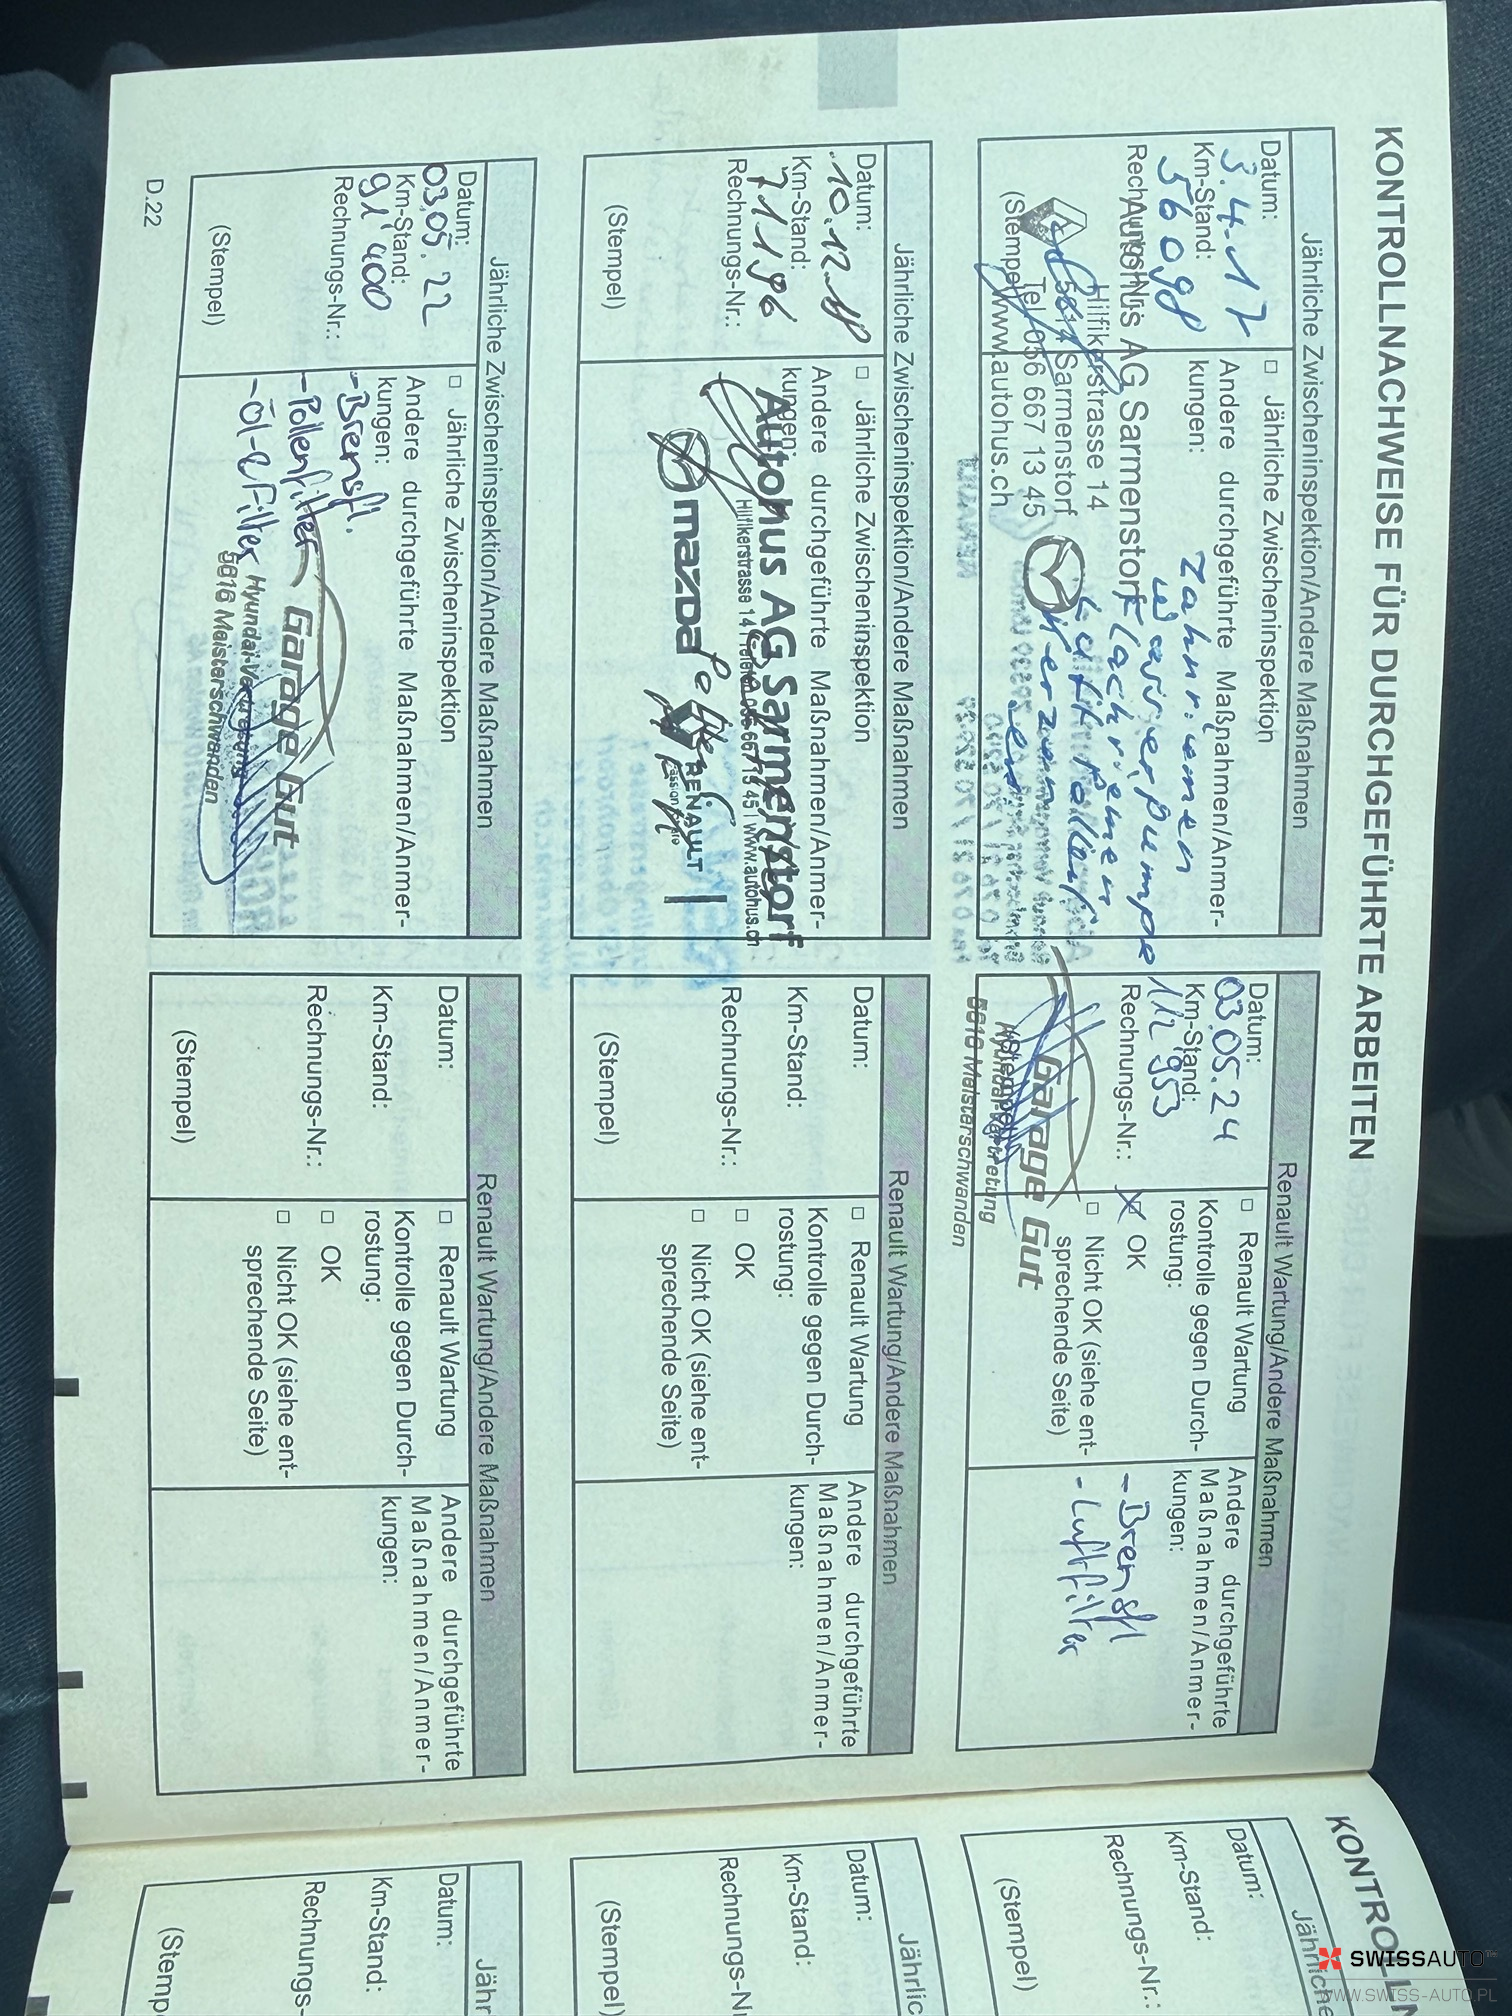 KONTROLLNACHWEISE FÜR DURCHGEFÜHRTE ARBEITEN
Jährliche Zwischeninspektion/Andere Maßnahmen
Datum:
3.4.17
Km-Stand:
56098
□ Jährliche Zwischeninspektion
Andere durchgeführte Maßnahmen/Anmer-
kungen:
Zahnriemen
Wasserpumpe
Autohus AG Sarmenstorf
Hilfikerstrasse 14
5614 Sarmenstorf
Tel 056 667 13 45
www.autohus.ch
(Stempel)
Kerzen
Renault Wartung/Andere Maßnahmen
Datum:
03.05.24
Km-Stand:
112 953
Rechnungs-Nr.:
(Stempel)
Garage Gut
Hyundai-Vertretung
5616 Meisterschwanden
□ Renault Wartung
Kontrolle gegen Durch-
rostung:
OK
□ Nicht OK (siehe ent-
sprechende Seite)
Andere durchgeführte
Maßnahmen/Anmer-
kungen:
- Bremsfl
- Luftfilter
Jährliche Zwischeninspektion/Andere Maßnahmen
Datum:
10.12.18
Km-Stand:
71196
Rechnungs-Nr.:
(Stempel)
□ Jährliche Zwischeninspektion
Andere durchgeführte Maßnahmen/Anmer-
kungen:
Autohus AG Sarmenstorf
Hilfikerstrasse 14 | Telefon 056 667 13 45 | www.autohus.ch
mazda
RENAULT
Renault Wartung/Andere Maßnahmen
Datum:
Km-Stand:
Rechnungs-Nr.:
(Stempel)
□ Renault Wartung
Kontrolle gegen Durch-
rostung:
□ OK
□ Nicht OK (siehe ent-
sprechende Seite)
Andere durchgeführte
Maßnahmen/Anmer-
kungen:
Jährliche Zwischeninspektion/Andere Maßnahmen
Datum:
03.05.22
Km-Stand:
91'400
Rechnungs-Nr.:
(Stempel)
□ Jährliche Zwischeninspektion
Andere durchgeführte Maßnahmen/Anmer-
kungen:
- Bremsfl.
- Pollenfilter
- Öl-&Filter
Garage Gut
Hyundai-Vertretung
5616 Meisterschwanden
Renault Wartung/Andere Maßnahmen
Datum:
Km-Stand:
Rechnungs-Nr.:
(Stempel)
□ Renault Wartung
Kontrolle gegen Durch-
rostung:
□ OK
□ Nicht OK (siehe ent-
sprechende Seite)
Andere durchgeführte
Maßnahmen/Anmer-
kungen:
D.22
KONTROLLN
Jährlich
Datum:
Km-Stand:
Rechnungs-Nr.:
(Stempel)
Jährlic
Datum:
Km-Stand:
Rechnungs-N
(Stempel)
Jähr
Datum:
Km-Stand:
Rechnungs-
(Stemp
SWISSAUTO
WWW.SWISS-AUTO.PL